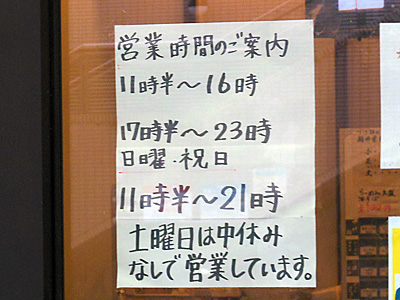 営業時間のご案内
11時半～16時
17時半～23時
日曜・祝日
11時半～21時
土曜日は中休み
なしで営業しています。